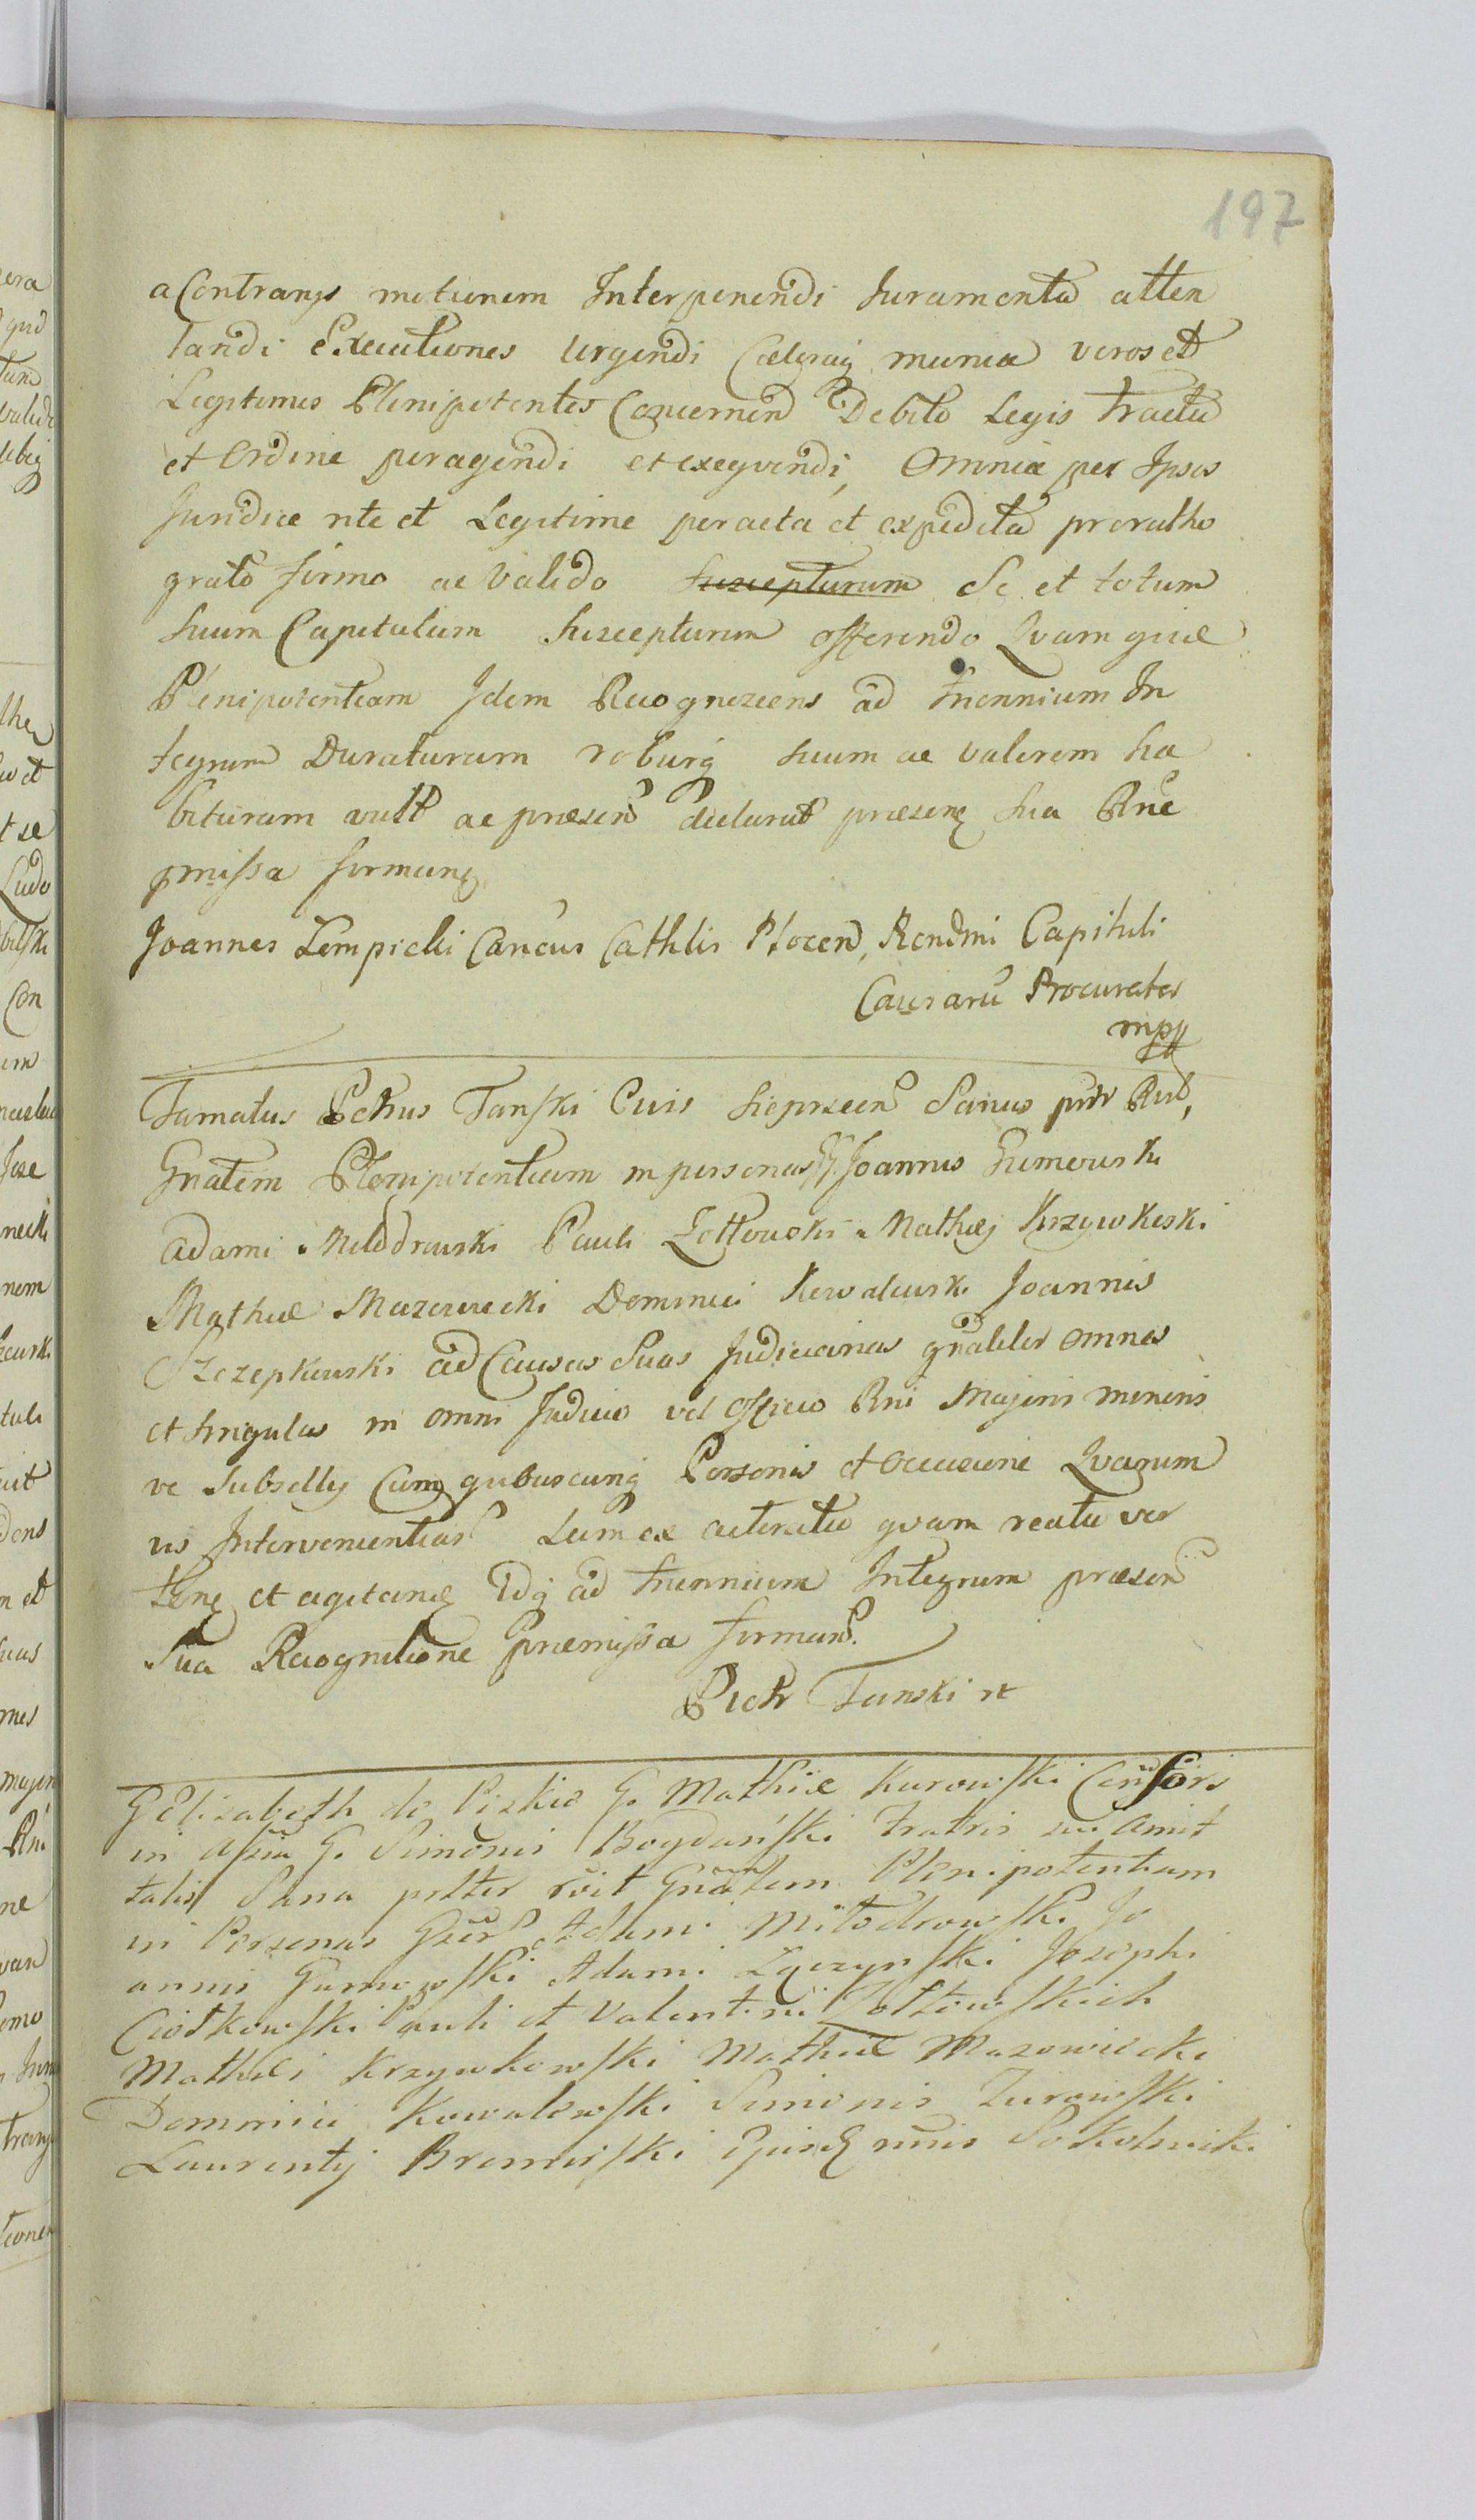 197
a Contrarys motionem Interponendi Iuramenta atten
tandi Executiones Urgendi Caeteraq munia veros et
Legitimos Plenipotentes Concernen Debito Legis tractu
et Ordine peragendi et exeqvendi, Omnia per Ipsos
Juridice rite et Legitime peracta et expedita pro ratho
grato firmo ac Valido Suscepturum Se et totum
suum Capitulum Suscepturum offerendo Qvam qvide
Plenipotentiam Idem Recognoscens ad triennium In
tegrum Duraturam roburq suum ac valorem ha
bituram vult ac praesen declarat praesenq sua Rne
pmissa firmanq
Joannes Lempicki Cancus Cathlis Plocen, Rendmi Capituli
Causarū Procurator
mpp
Famatus Petrus Tanski Civis Sieprecen Sanus pttr Rit,
Gnalem Plenipotentiam in personas GG. Joannis Gumowski
Adami Milodrowski Pauli Zołtowski Mathiej Krzywkoski
Mathiae Mazowiecki Dominici Kowalewski Joannis
Szczepkowski ad Causas Suas Judiciarias gnaliter omnes
et singulas in omni Judicio vel Officio Rni Majoris minoris
ve Subsellij Cum qvibuscunq Personis et Occasione Qvarum
vis Intervenientias tam ex acteratu qvam reatu ver
ten et agitan Idq ad triennium Integrum praesen
Sua Recognitione praemissa firman.
Piotr Tanski
G Elisabeth de Piskie G. Mathiae Kurowski Consors
in Assia G. Simonis Bogdański Fratris sui Amit
talis Sana pttter rōit Gnalem Plenipotentiam
in Personas Gner Adami Miłodrowski Jo
annis Gumowski Adami Łączynski Josephi
Ciołkowski Pauli et Valentini Zołtowskich
Mathaei Krzywkowski Mathiae Mazowiecki
Dominici Kowalewski Simonis Zurawski
Laurentij Bromirski Sokolnicki